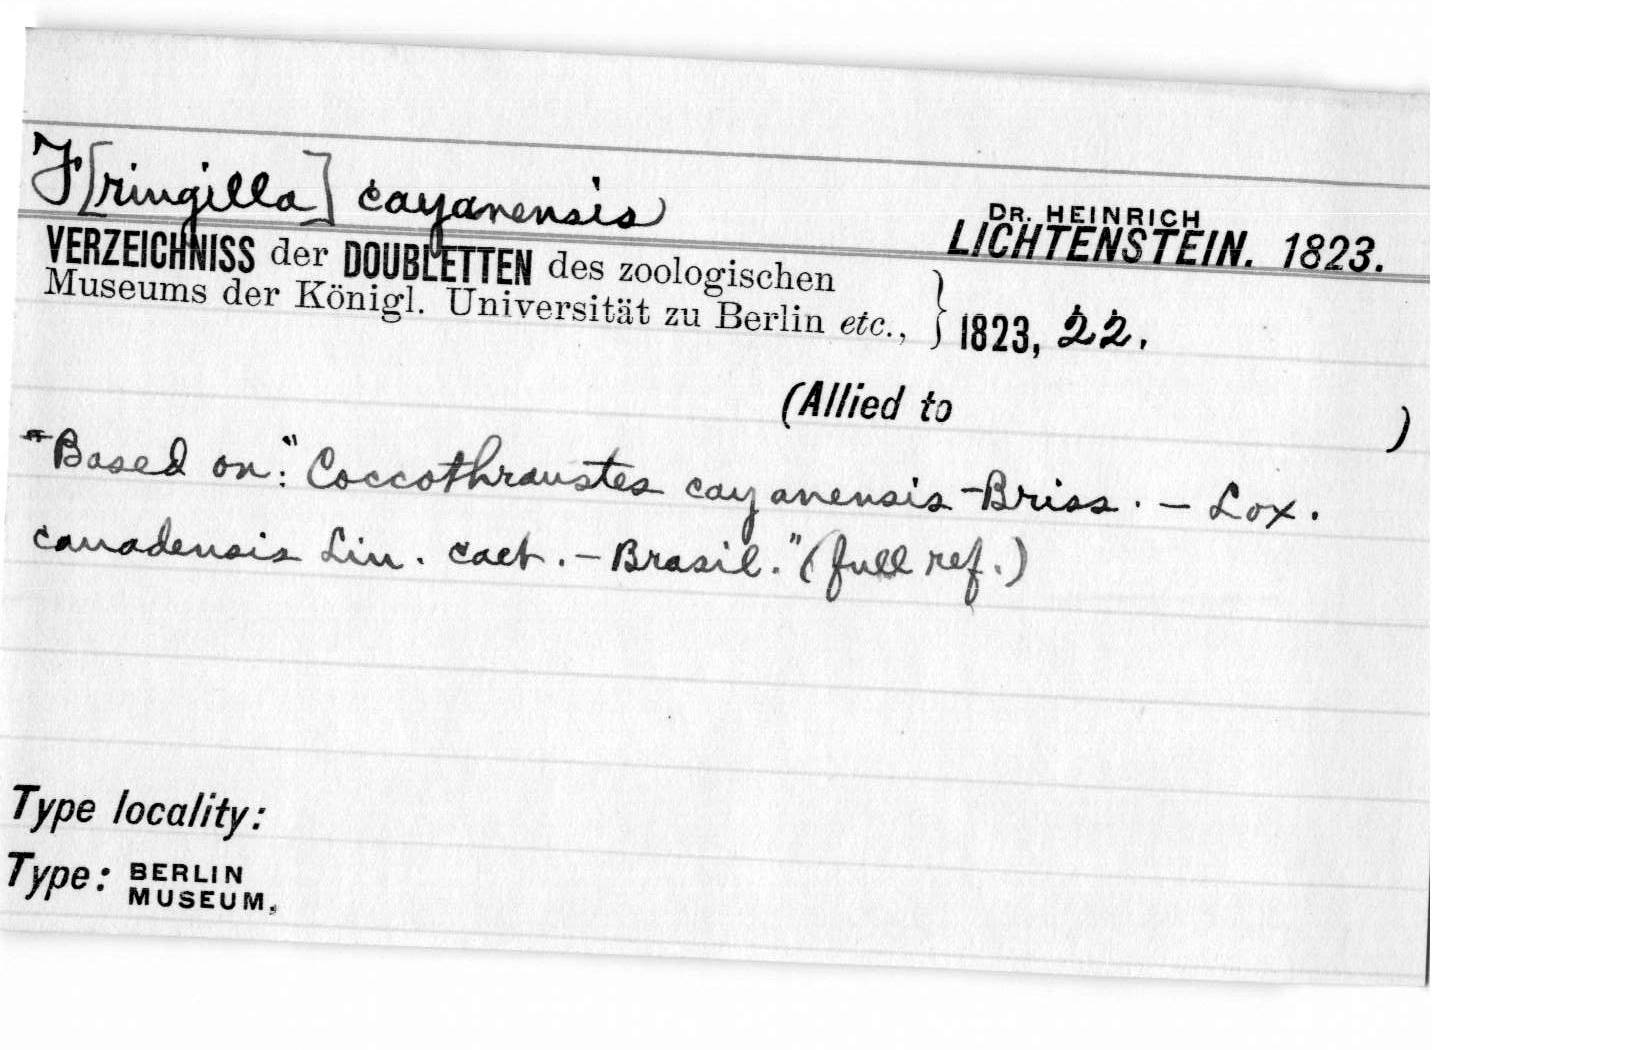 F[ringilla] cayanensis
DR. HEINRICH
LICHTENSTEIN. 1823.
VERZEICHNISS der DOUBLETTEN des zoologischen
Museums der Königl. Universität zu Berlin etc., } 1823, 22.
(Allied to )
Based on: "Coccothraustes cayanensis - Briss. - Lox.
canadensis Lin. caet. - Brasil." (full ref.)
Type locality:
Type: BERLIN
MUSEUM.